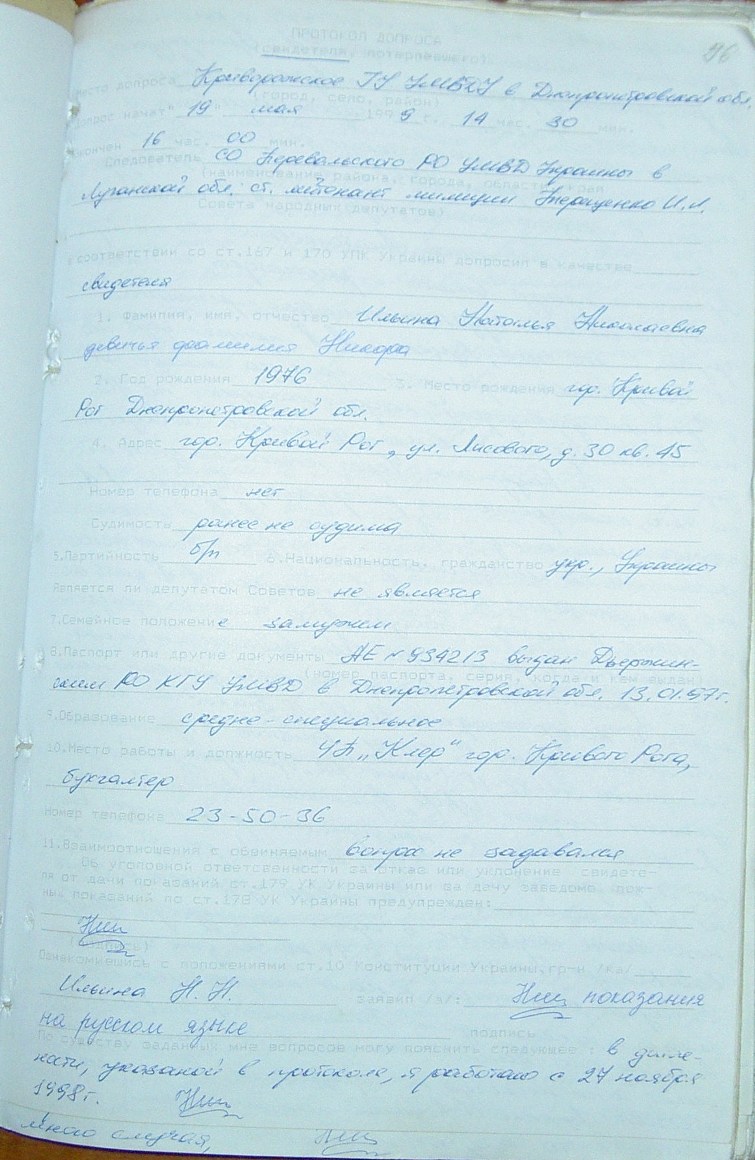 96
ПРОТОКОЛ ДОПРОСА
(свидетеля, потерпевшего)
Место допроса Криворожское ГУ УМВДУ в Днепропетровской обл.
(город, село, район)
Допрос начат "19" мая 1999 г. 14 час. 30 мин.
окончен 16 час. 00 мин.
Следователь СО Перевальского РО УМВД Украины в
(наименование района, города, области, края
Луганской обл. ст. лейтенант милиции Терещенко И.И.
Совета народных депутатов)
в соответствии со ст.167 и 170 УПК Украины допросил в качестве
свидетеля
1. Фамилия, имя, отчество Ильина Наталья Николаевна
девичья фамилия Никора
2. Год рождения 1976 3. Место рождения гор. Кривой
Рог Днепропетровской обл.
4. Адрес гор. Кривой Рог, ул. Лисового, д. 30 кв. 45
Номер телефона нет
Судимость ранее не судима
5.Партийность б/п 6.Национальность, гражданство укр., Украины
Является ли депутатом Советов не является
7.Семейное положение замужем
8.Паспорт или другие документы АЕ № 934213 выдан Дзержин-
(номер паспорта, серия, когда и кем выдан)
ским РО КГУ УМВД в Днепропетровской обл. 13.01.97г.
9.Образование средне-специальное
10.Место работы и должность ЧП "Клер" гор. Кривого Рога,
бухгалтер
Номер телефона 23-50-36
11.Взаимоотношения с обвиняемым вопрос не задавался
Об уголовной ответсвенности за отказ или уклонение свидете-
ля от дачи показаний ст.179 УК Украины или за дачу заведомо лож-
ных показаний по ст.178 УК Украины предупрежден:
(подпись)
Ознакомившись с положениями ст.10 Конституции Украины,гр-н /ка/
Ильина Н.Н. заявил /а/: показания
на русском языке подпись
По существу заданных мне вопросов могу пояснить следующее: в долж-
ности, указаной в протоколе, я работаю с 27 ноября
1998г.
случая,